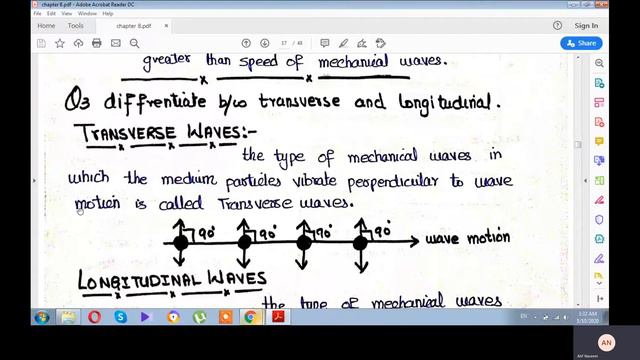 chapter 8.pdf - Adobe Acrobat Reader DC
File Edit View Window Help
Home Tools chapter 8.pdf × Sign In
37 / 48 Share
greater than speed of mechanical waves.
Q3 diffrentiate b/w transverse and longitudinal.
TRANSVERSE WAVES:-
the type of mechanical waves in
which the medium particles vibrate perpendicular to wave
motion is called Transverse waves.
90° 90° 90° 90° wave motion
LONGITUDINAL WAVES
the type of mechanical waves
EN 3:32 AM
AN
Arif Naseem